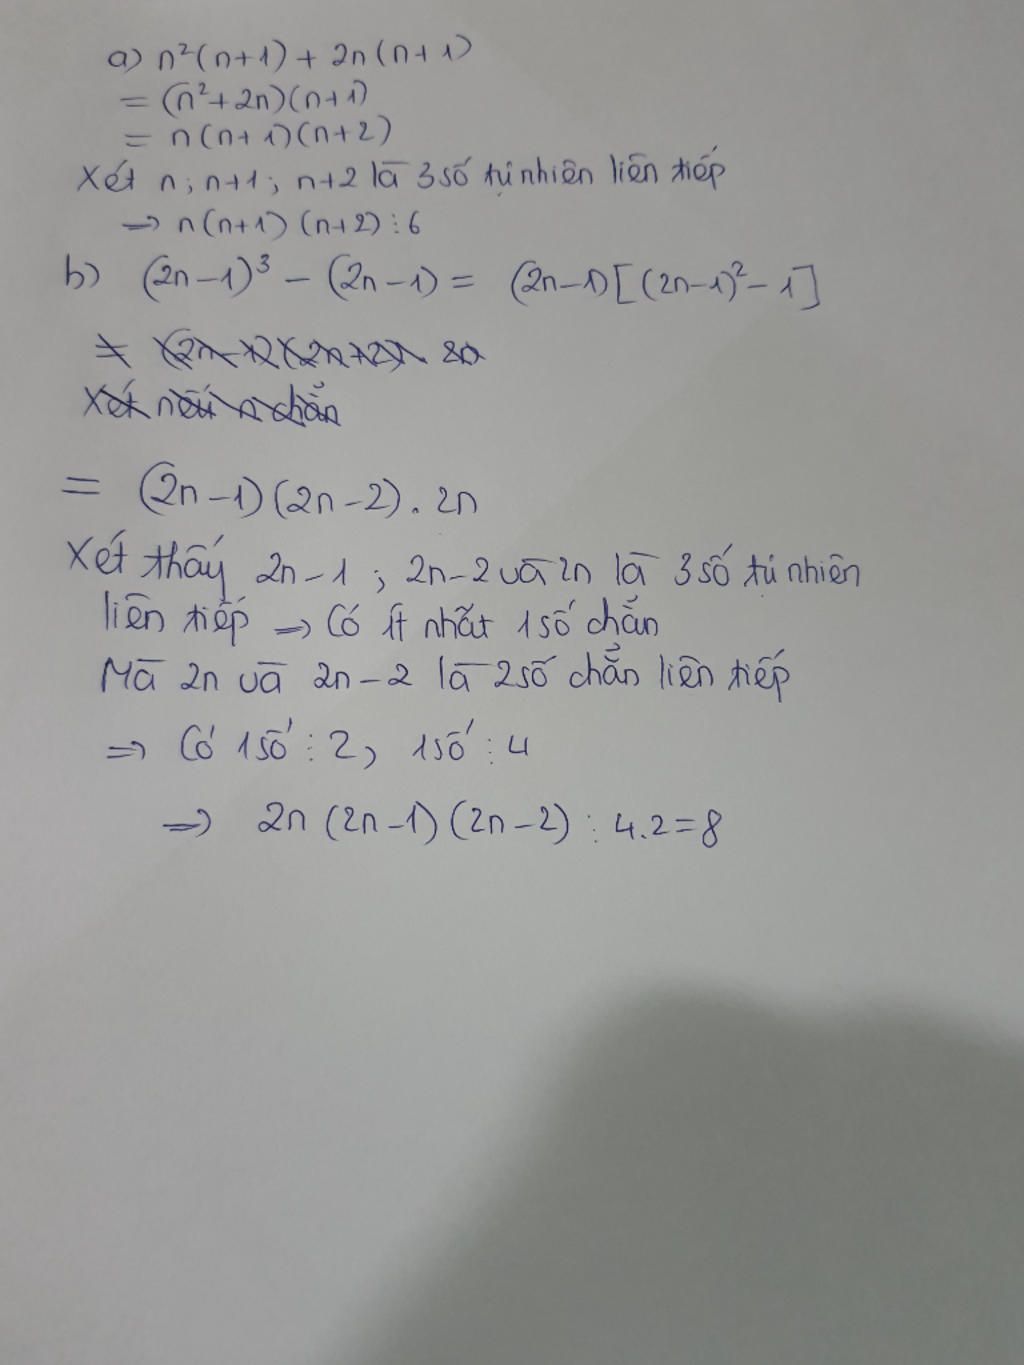 a) n²(n+1) + 2n(n+1)
= (n²+2n)(n+1)
= n(n+1)(n+2)
Xét n; n+1; n+2 là 3 số tự nhiên liên tiếp
⇒ n(n+1)(n+2) ⋮ 6
b) (2n-1)³ - (2n-1) = (2n-1)[(2n-1)² - 1]
Xét nếu n chẵn
= (2n-1)(2n-2).2n
Xét thấy 2n-1; 2n-2 và 2n là 3 số tự nhiên
liên tiếp ⇒ Có ít nhất 1 số chẵn
Mà 2n và 2n-2 là 2 số chẵn liên tiếp
⇒ Có 1 số ⋮ 2, 1 số ⋮ 4
⇒ 2n(2n-1)(2n-2) ⋮ 4.2=8